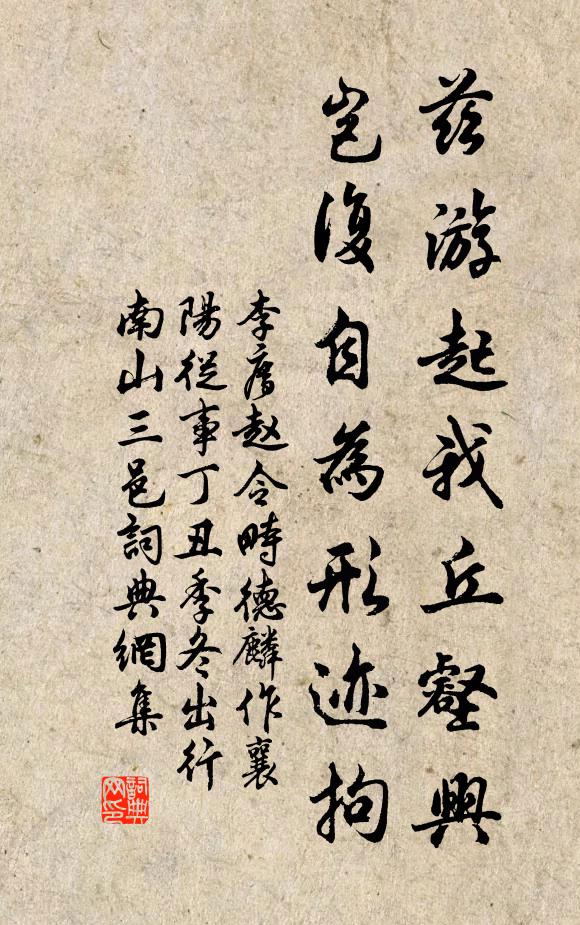 茲游起我丘壑興
豈復自為形迹拘
李廌赵令畤德麟作襄
陽從事丁丑季冬出行
南山三邑詞典網集
詞典
网印